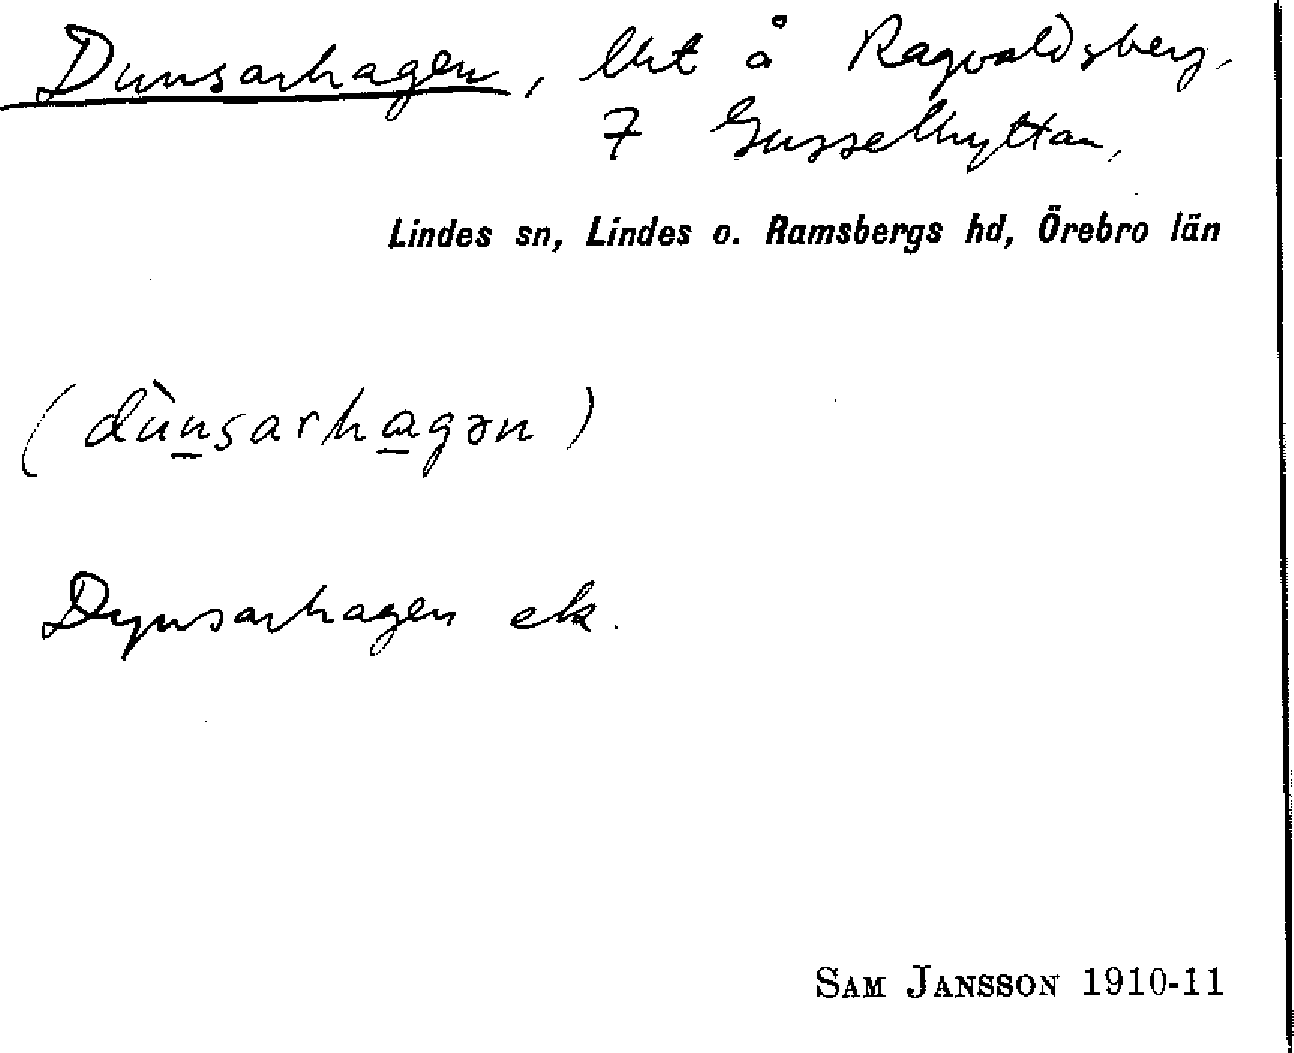 Dunsarhagen, lht å Ragvaldsberg,
7 Gusselhyttan,
Lindes sn, Lindes o. Ramsbergs hd, Örebro län
(dùn̲sarha̲gən)
Dynsarhagen ek.
SAM JANSSON 1910-11